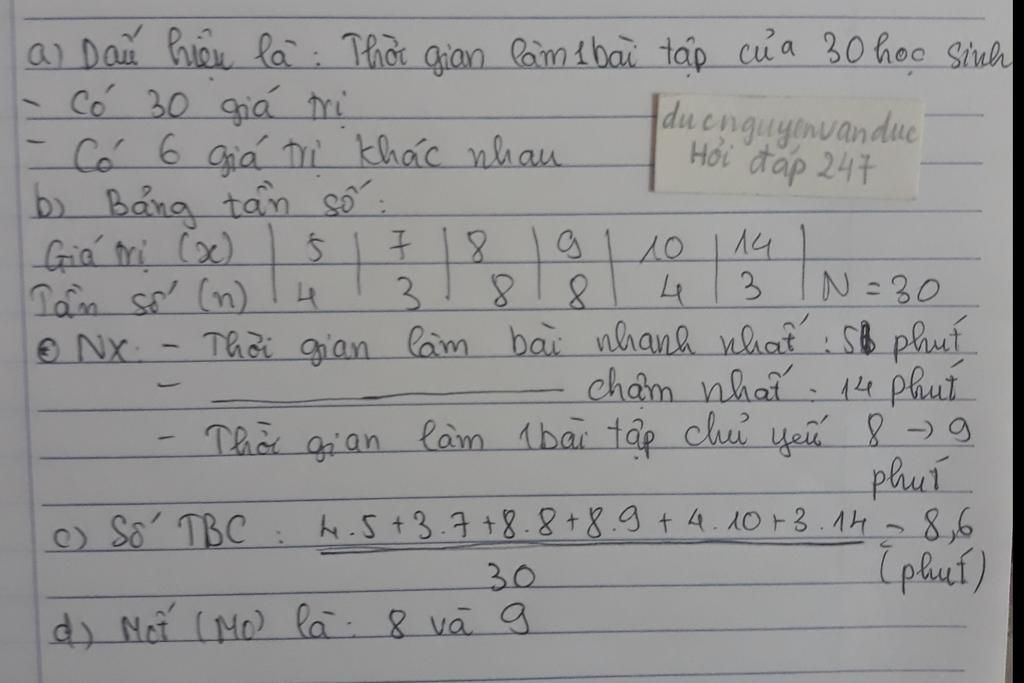 a) Dấu hiệu là: Thời gian làm 1 bài tập của 30 học sinh
- Có 30 giá trị
- Có 6 giá trị khác nhau
ducnguyenvanduc
Hỏi đáp 247
b) Bảng tần số:
Giá trị (x) | 5 | 7 | 8 | 9 | 10 | 14 |
Tần số (n) | 4 | 3 | 8 | 8 | 4 | 3 | N = 30
NX: - Thời gian làm bài nhanh nhất: 5 phút
- ———— chậm nhất: 14 phút
- Thời gian làm 1 bài tập chủ yếu 8 → 9
phút
c) Số TBC: 4.5+3.7+8.8+8.9+4.10+3.14 = 8,6
30 (phút)
d) Mốt (Mo) là: 8 và 9